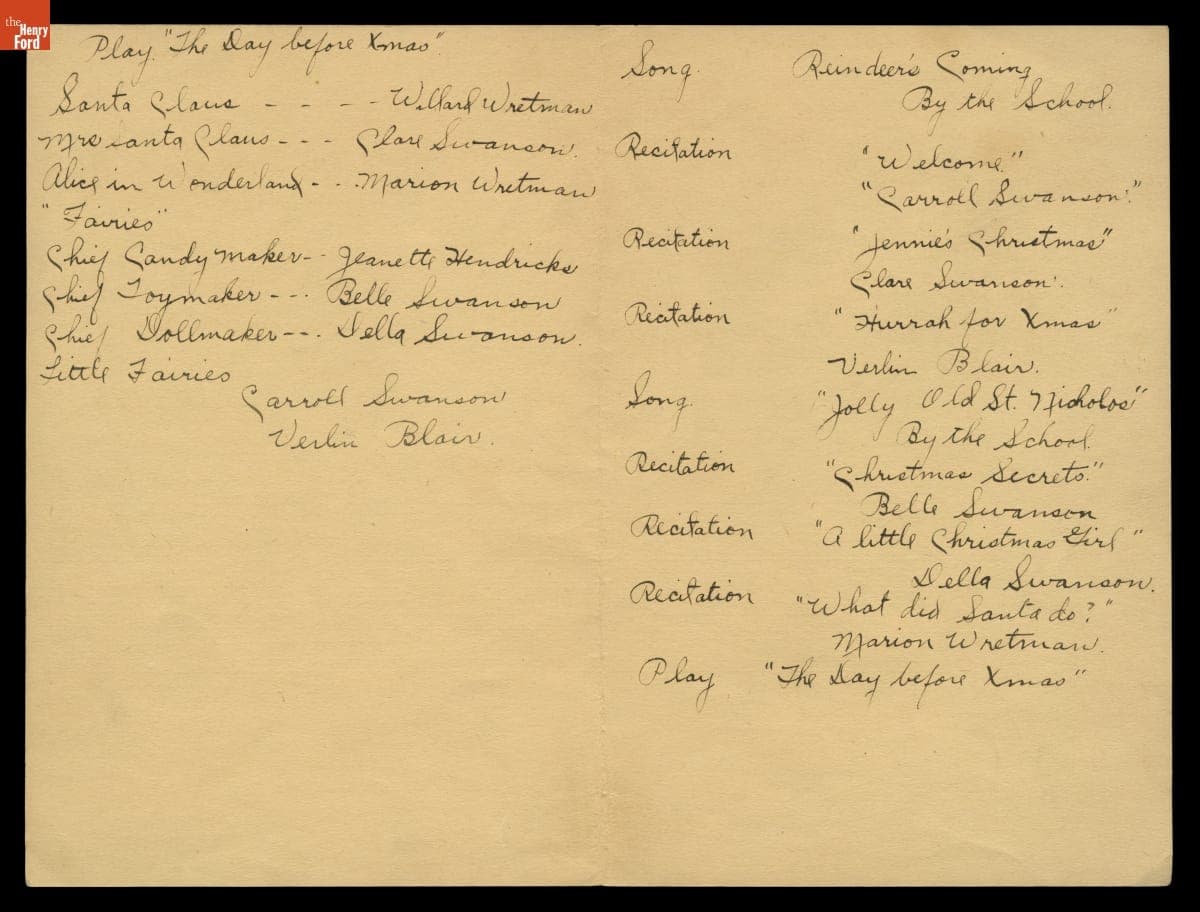 the
Henry
Ford
Play. "The Day before Xmas".
Santa Claus - - - - Willard Wretman
Mrs Santa Claus - - - Clare Swanson.
Alice in Wonderland - - - Marion Wretman
"Fairies"
Chief Candy maker - - Jeanette Hendricks
Chief Toymaker - - - Belle Swanson
Chief Dollmaker - - - Della Swanson.
Little Fairies
Carroll Swanson
Verlin Blair.
Song. Reindeer's Coming
By the School.
Recitation "Welcome."
"Carroll Swanson."
Recitation "Jennie's Christmas"
Clare Swanson.
Recitation "Hurrah for Xmas"
Verlin Blair.
Song. "Jolly Old St. Nicholos"
By the School.
Recitation "Christmas Secrets."
Belle Swanson
Recitation "A little Christmas Girl"
Della Swanson.
Recitation "What did Santa do?"
Marion Wretman.
Play "The Day before Xmas"